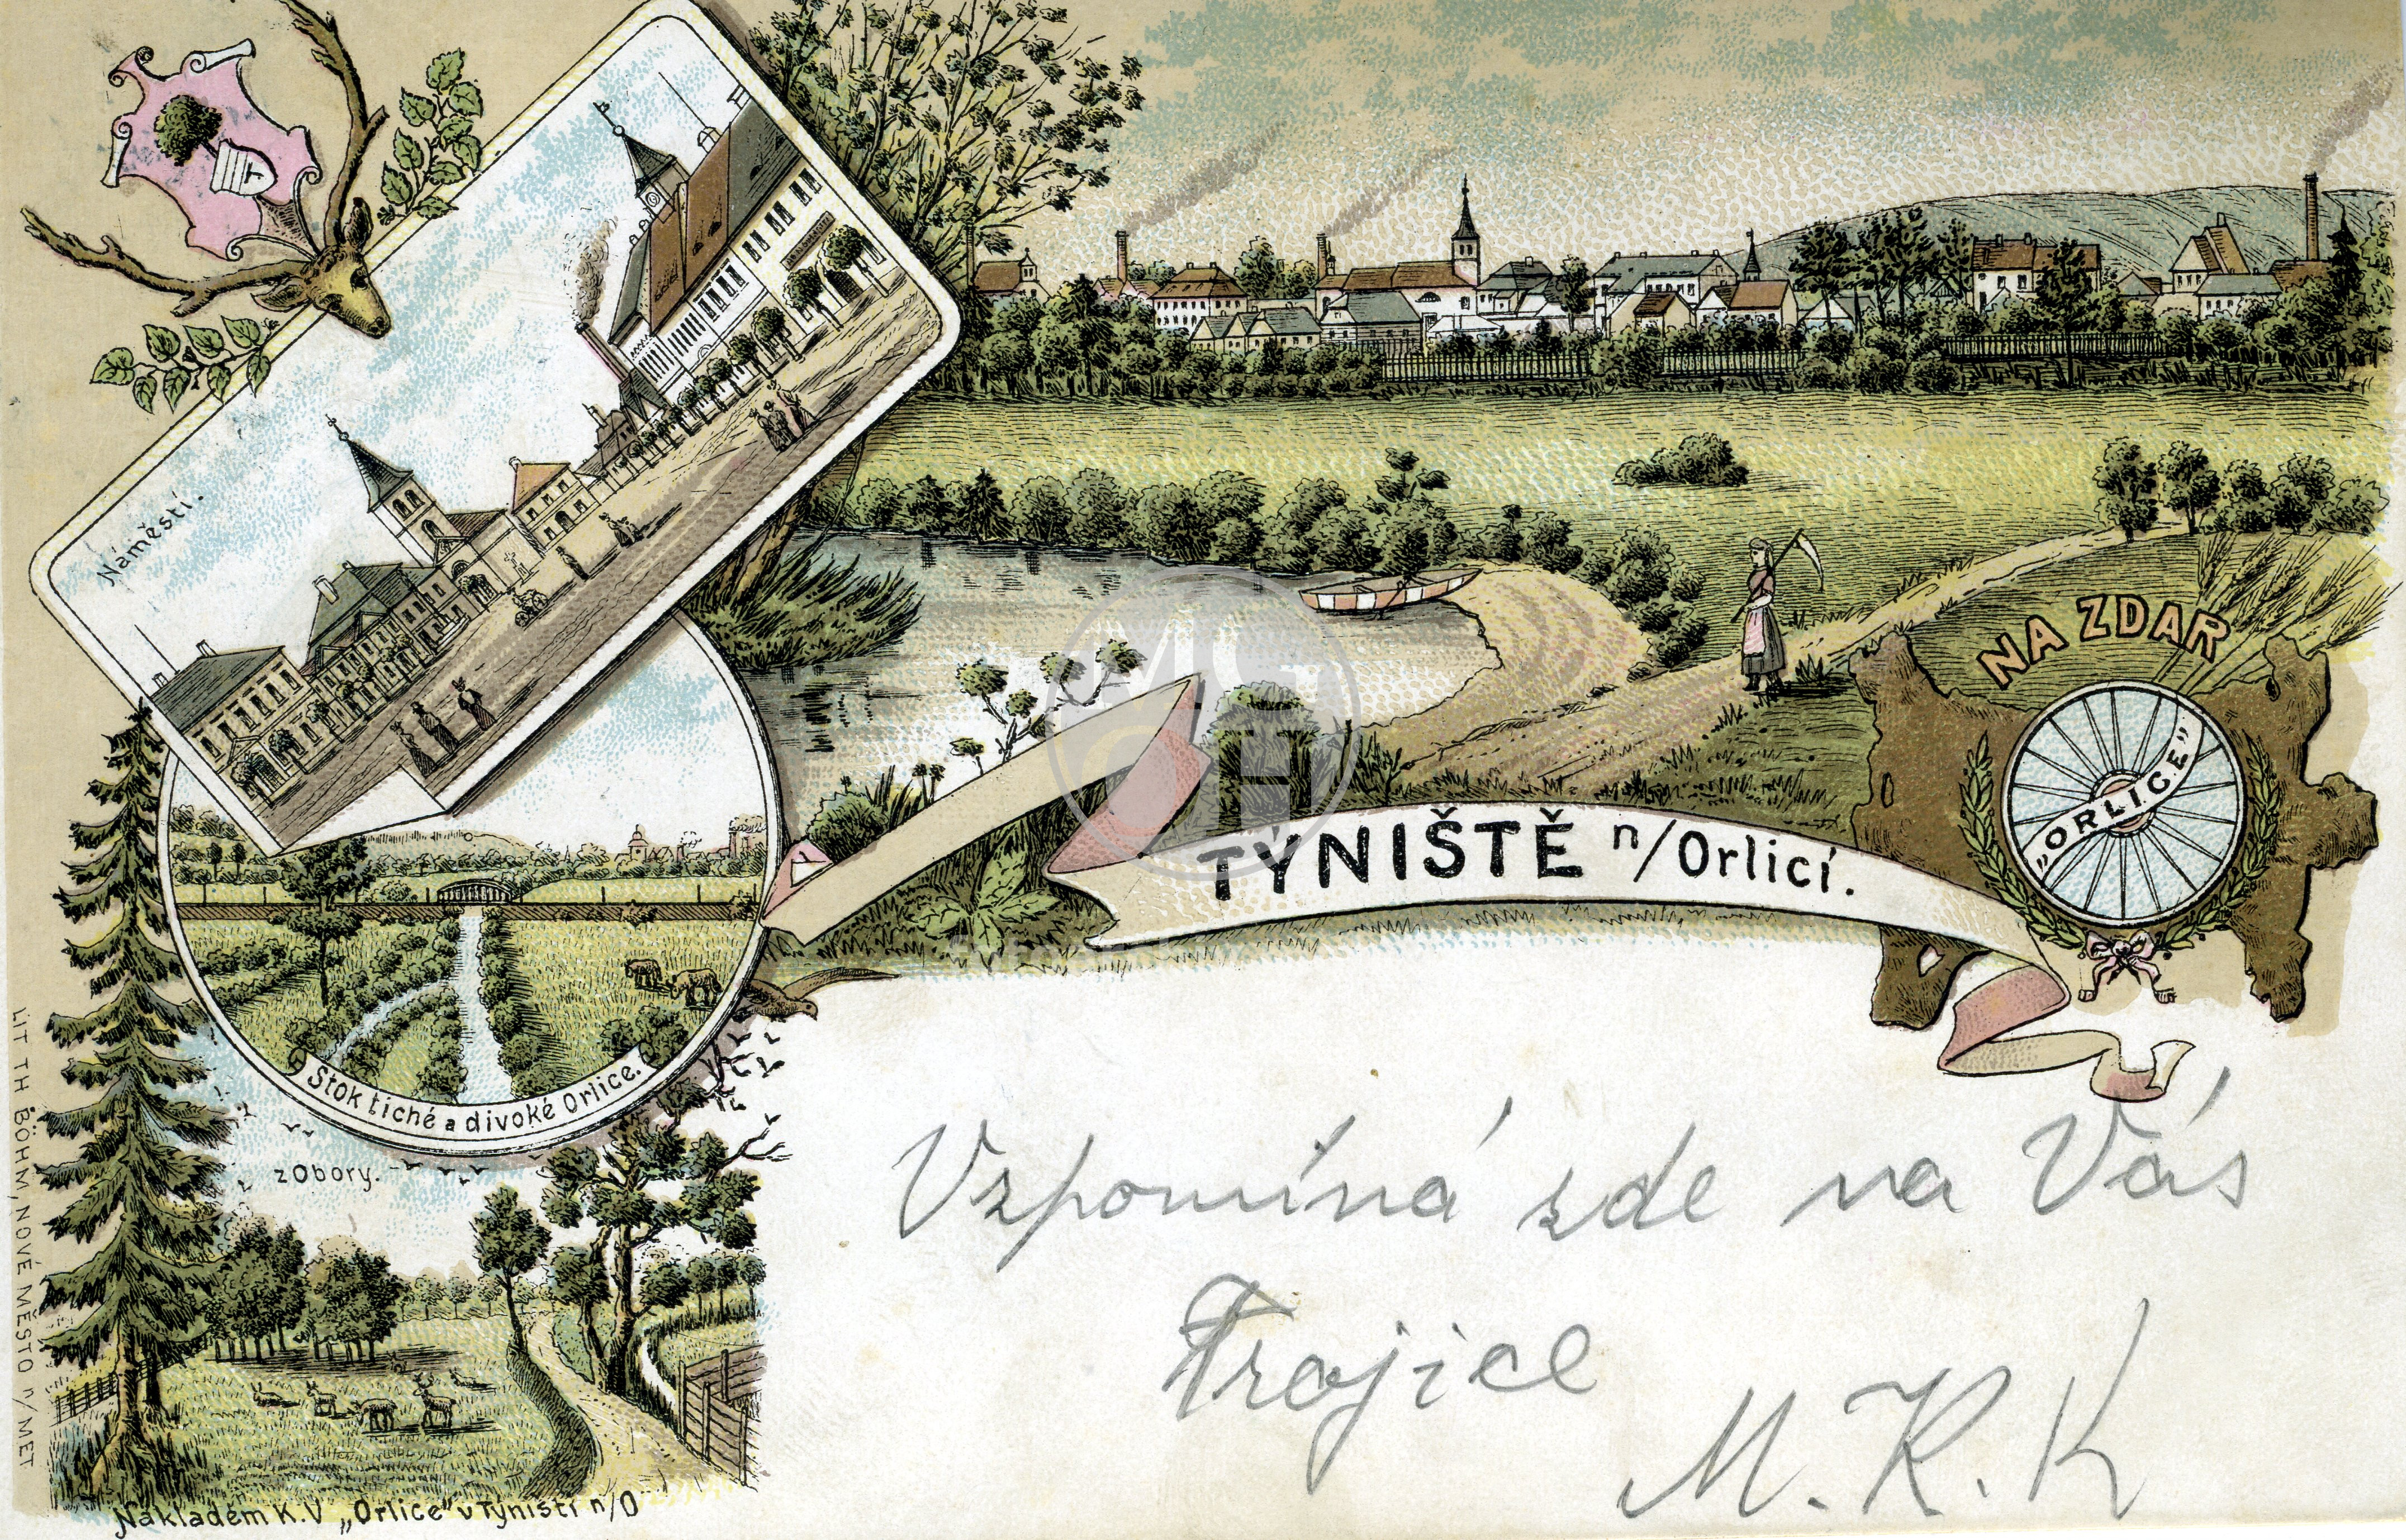 Náměstí.
NA ZDAR
„ORLICE"
TÝNIŠTĚ n/Orlicí.
Stok tiché a divoké Orlice.
z Obory.
Vzpomíná zde na Vás
Trojice
M. K. K
LIT TH BÖHM, NOVÉ MĚSTO n/MET
Nákladem K.V „Orlice" v Týništi n/O